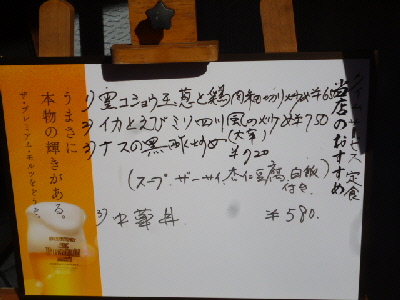 サービス定食
当店のおすすめ
コショウ玉葱と鶏肉細切り炒め ¥680
2) イカとえびミリ四川風の炒め ¥750
3) ナスの黒酢炒め (大辛)
¥720
(スープ、ザーサイ、杏仁豆腐、白飯付き)
中華丼 ¥580.
うまさに
本物の輝きがある。
ザ・プレミアム・モルツをどうぞ。